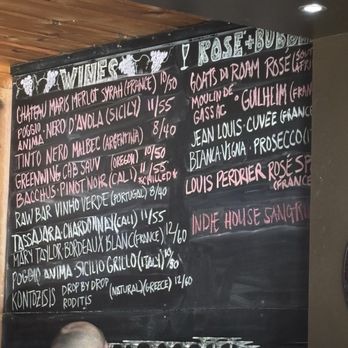 WINES
CHATEAU MARIS MERLOT SYRAH (FRANCE) 10/50
POGGIO ANIMA NERO D'AVOLA (SICILY) 11/55
TINTO NERO MALBEC (ARGENTINA) 8/40
GREENWING CAB SAUV (OREGON) 10/50
BACCHUS · PINOT NOIR (CALI) 11/55
CHILLED
RAW BAR VINHO VERDE (PORTUGAL) 8/40
TASSAJARA CHARDONNAY (CALI) 11/55
MARY TAYLOR BORDEAUX BLANC (FRANCE) 12/60
POGGIO ANIMA SICILIO GRILLO (ITALY) 80
KONTOZISIS DROP BY DROP (NATURAL) (GREECE) 12/60
RODITIS
ROSÉ + BUBB
GOATS DI ROAM ROSÉ
MOULIN DE GASSAC · GUILHEIM (FRAN
JEAN LOUIS · CUVÉE (FRANC
BIANCA VIGNA · PROSECCO (IT
LOUIS PERDRIER ROSÉ SP
(FRANCE
INDIE HOUSE SANGR